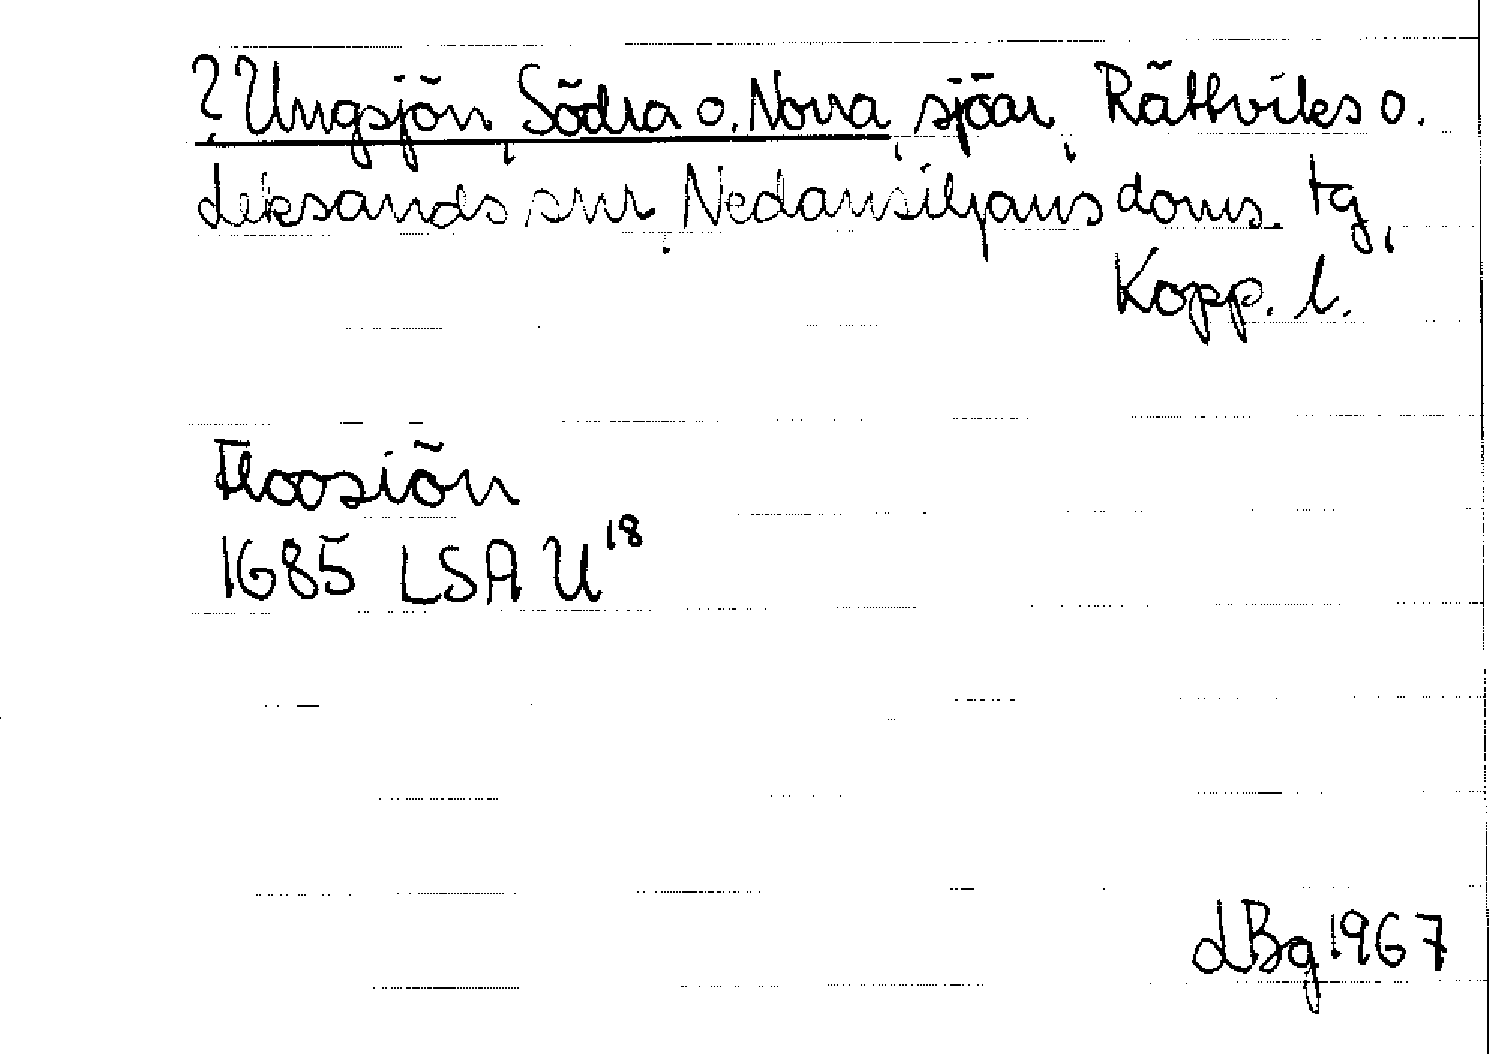 ? Ungsjön, Södra o. Norra, sjöar, Rättviks o.
Leksands snr, Nedansiljans doms. tg,
Kopp. l.
Floosiön
1685 LSA U 18
LBg 1967